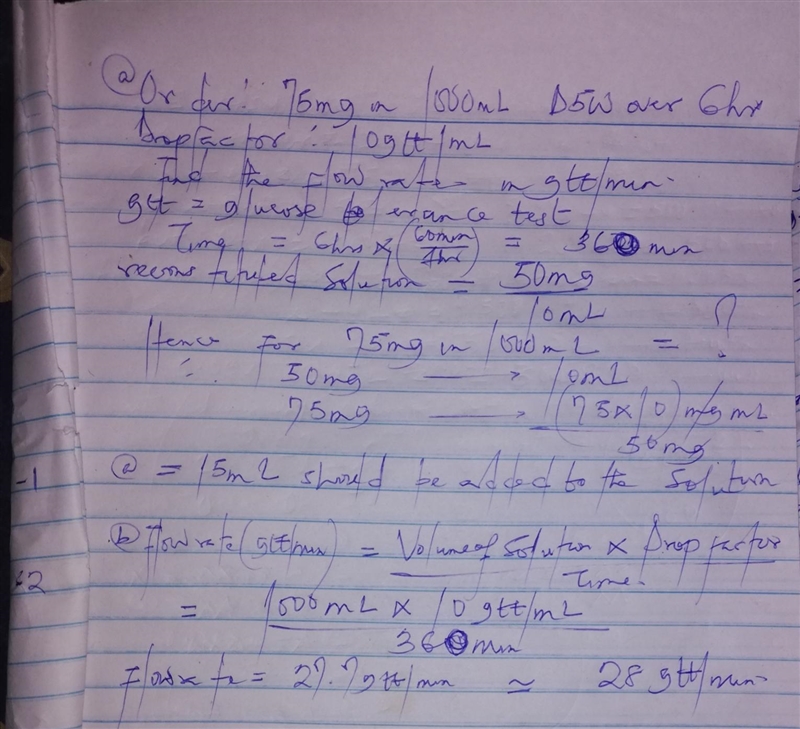 (a) Order: 75mg in 1000mL D5W over 6hr
Drop factor: 10gtt/mL
Find the flow rate in gtt/min.
gtt = glucose tolerance test
Time = 6hrs × (60min/1hr) = 360 min
reconstituted solution = 50mg/10mL
Hence for 75mg in 1000mL = ?
∴ 50mg → 10mL
75mg → (75×10) mg mL/50mg
-1 (a) = 15mL should be added to the solution
(b) Flow rate (gtt/min) = Volume of solution × Drop factor/Time.
2
= 1000mL × 10gtt/mL/360min
Flow rate = 27.7gtt/min ≃ 28 gtt/min.